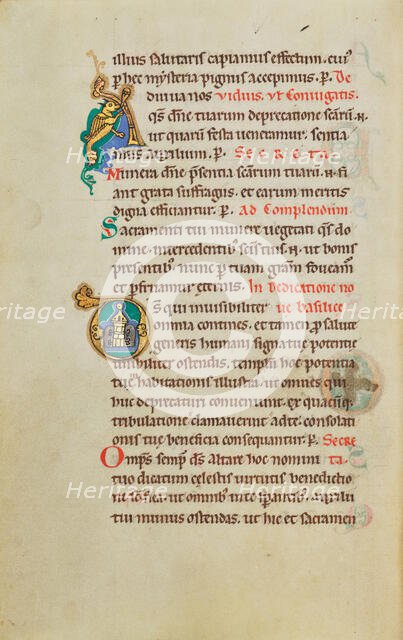 illius salutaris capiamus effectum. cui'
p̄ hec mysteria pignus accepimus. P. De
diuua nos Viduis. ut Coniugatis.
qs dn̄e tuarum deprecatione sc̄arū .N.
ut quarū festa ueneramur. sentia
mus auxilium. P. SECRETA
Munera dn̄e p̄sentia sc̄arum tuarū .N. fi
ant grata suffragiis. et earum meritis
digna efficiantur. P. Ad Complendūm
Sacramenti tui munere uegetati qs do
mine. intercedentib' sc̄is tuis .N. ut bonis
presentib' nunc p̄ tuam gr̄am foueam'
et p̄fruamur eternis. In dedicatione no
qui inuisibiliter ue basilice
omnia contines. et tam̄ p̄ salute
generis humani signa tue potentie
uisibiliter ostendis. templum hoc potentia
tue habitationis illustra. ut omnes qui
huc deprecaturi conueniunt. ex quacūq;
tribulatione clamauerint ad te. consolati
onis tue beneficia consequantur. P. Secre
Omps semp̄ ds. altare hoc nomini ta
tuo dicatum celestis uirtutis benedictio
ne ut omnib' in te sperantib' auxilii
tui munus ostendas. ut hic et sacramen
Heritage
Heritage
Heritage
Heritage
Heritage
Heritage